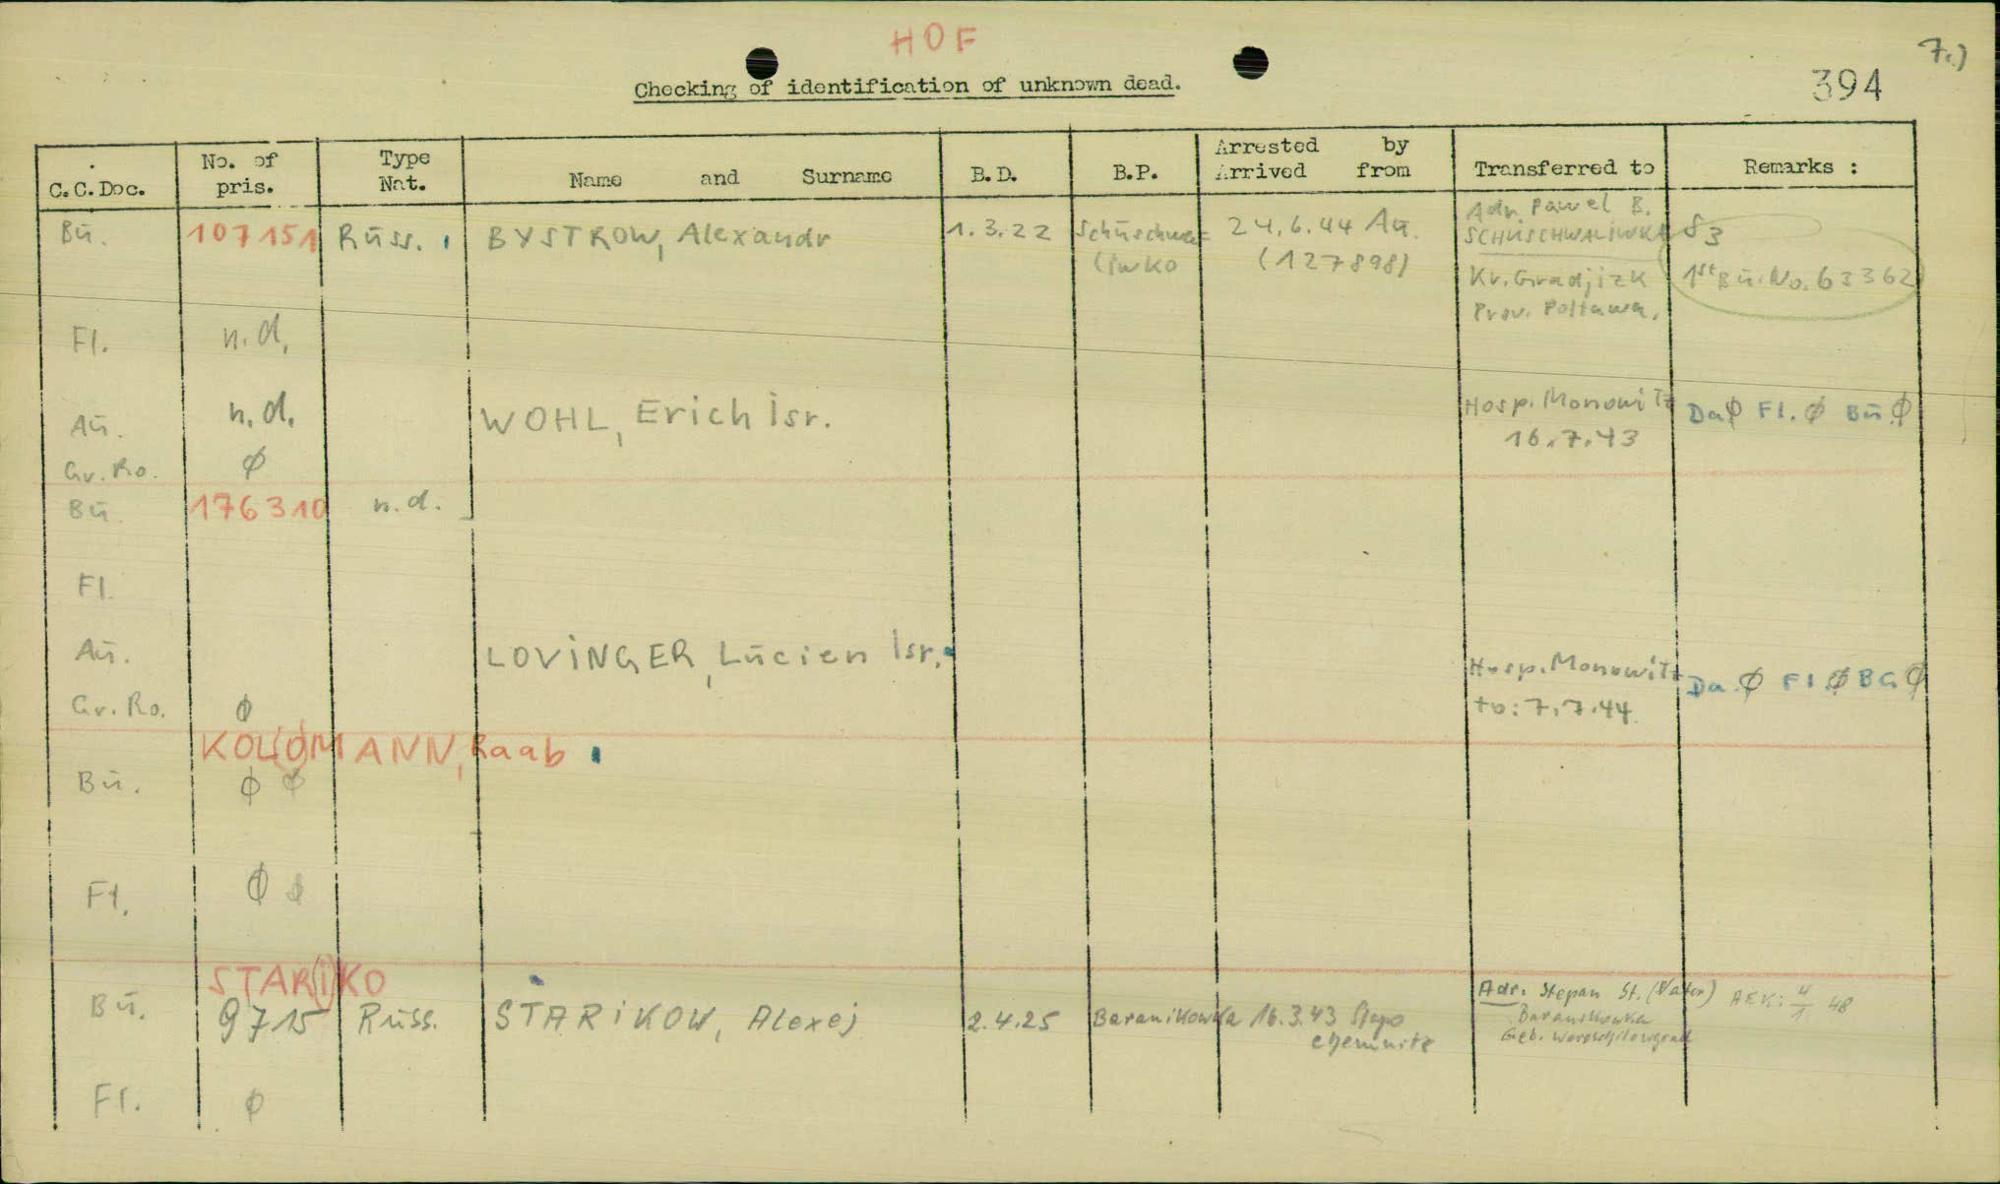 HOF
7.)
Checking of identification of unknown dead.
394
C.C.Doc. No. of pris. Type Nat. Name and Surname B.D. B.P. Arrested by Arrived from Transferred to Remarks :
Bu. 107151 Russ. BYSTROW, Alexandr 1.3.22 Schuschwa= liwko 24.6.44 Au. (127898) Adr. Pawel B. SCHUSCHWALIWKA
Kr. Gradjizk 1st Bu. No. 63362
Prov. Poltawa.
Fl. n.d.
Au. n.d. WOHL, Erich Isr. Hosp. Monowitz 16.7.43 Da Ø Fl. Ø Bu Ø
Gr. Ro. Ø
Bu. 176310 n.d.
Fl.
Au. LOVINGER, Lucien Isr. Hosp. Monowitz to: 7.7.44 Da. Ø Fl Ø BG Ø
Gr. Ro. Ø
KOLOMANN, Raab
Bu. Ø Ø
Fl. Ø Ø
STAR(i)KO
Bu. 9715 Russ. STARIKOW, Alexej 2.4.25 Baranikowka 16.3.43 Stapo Chemnitz Adr. Stepan St. (Vater)
Baranikowka
Geb. Woroschilowgrad
AEK: 4/1 48
Fl. Ø